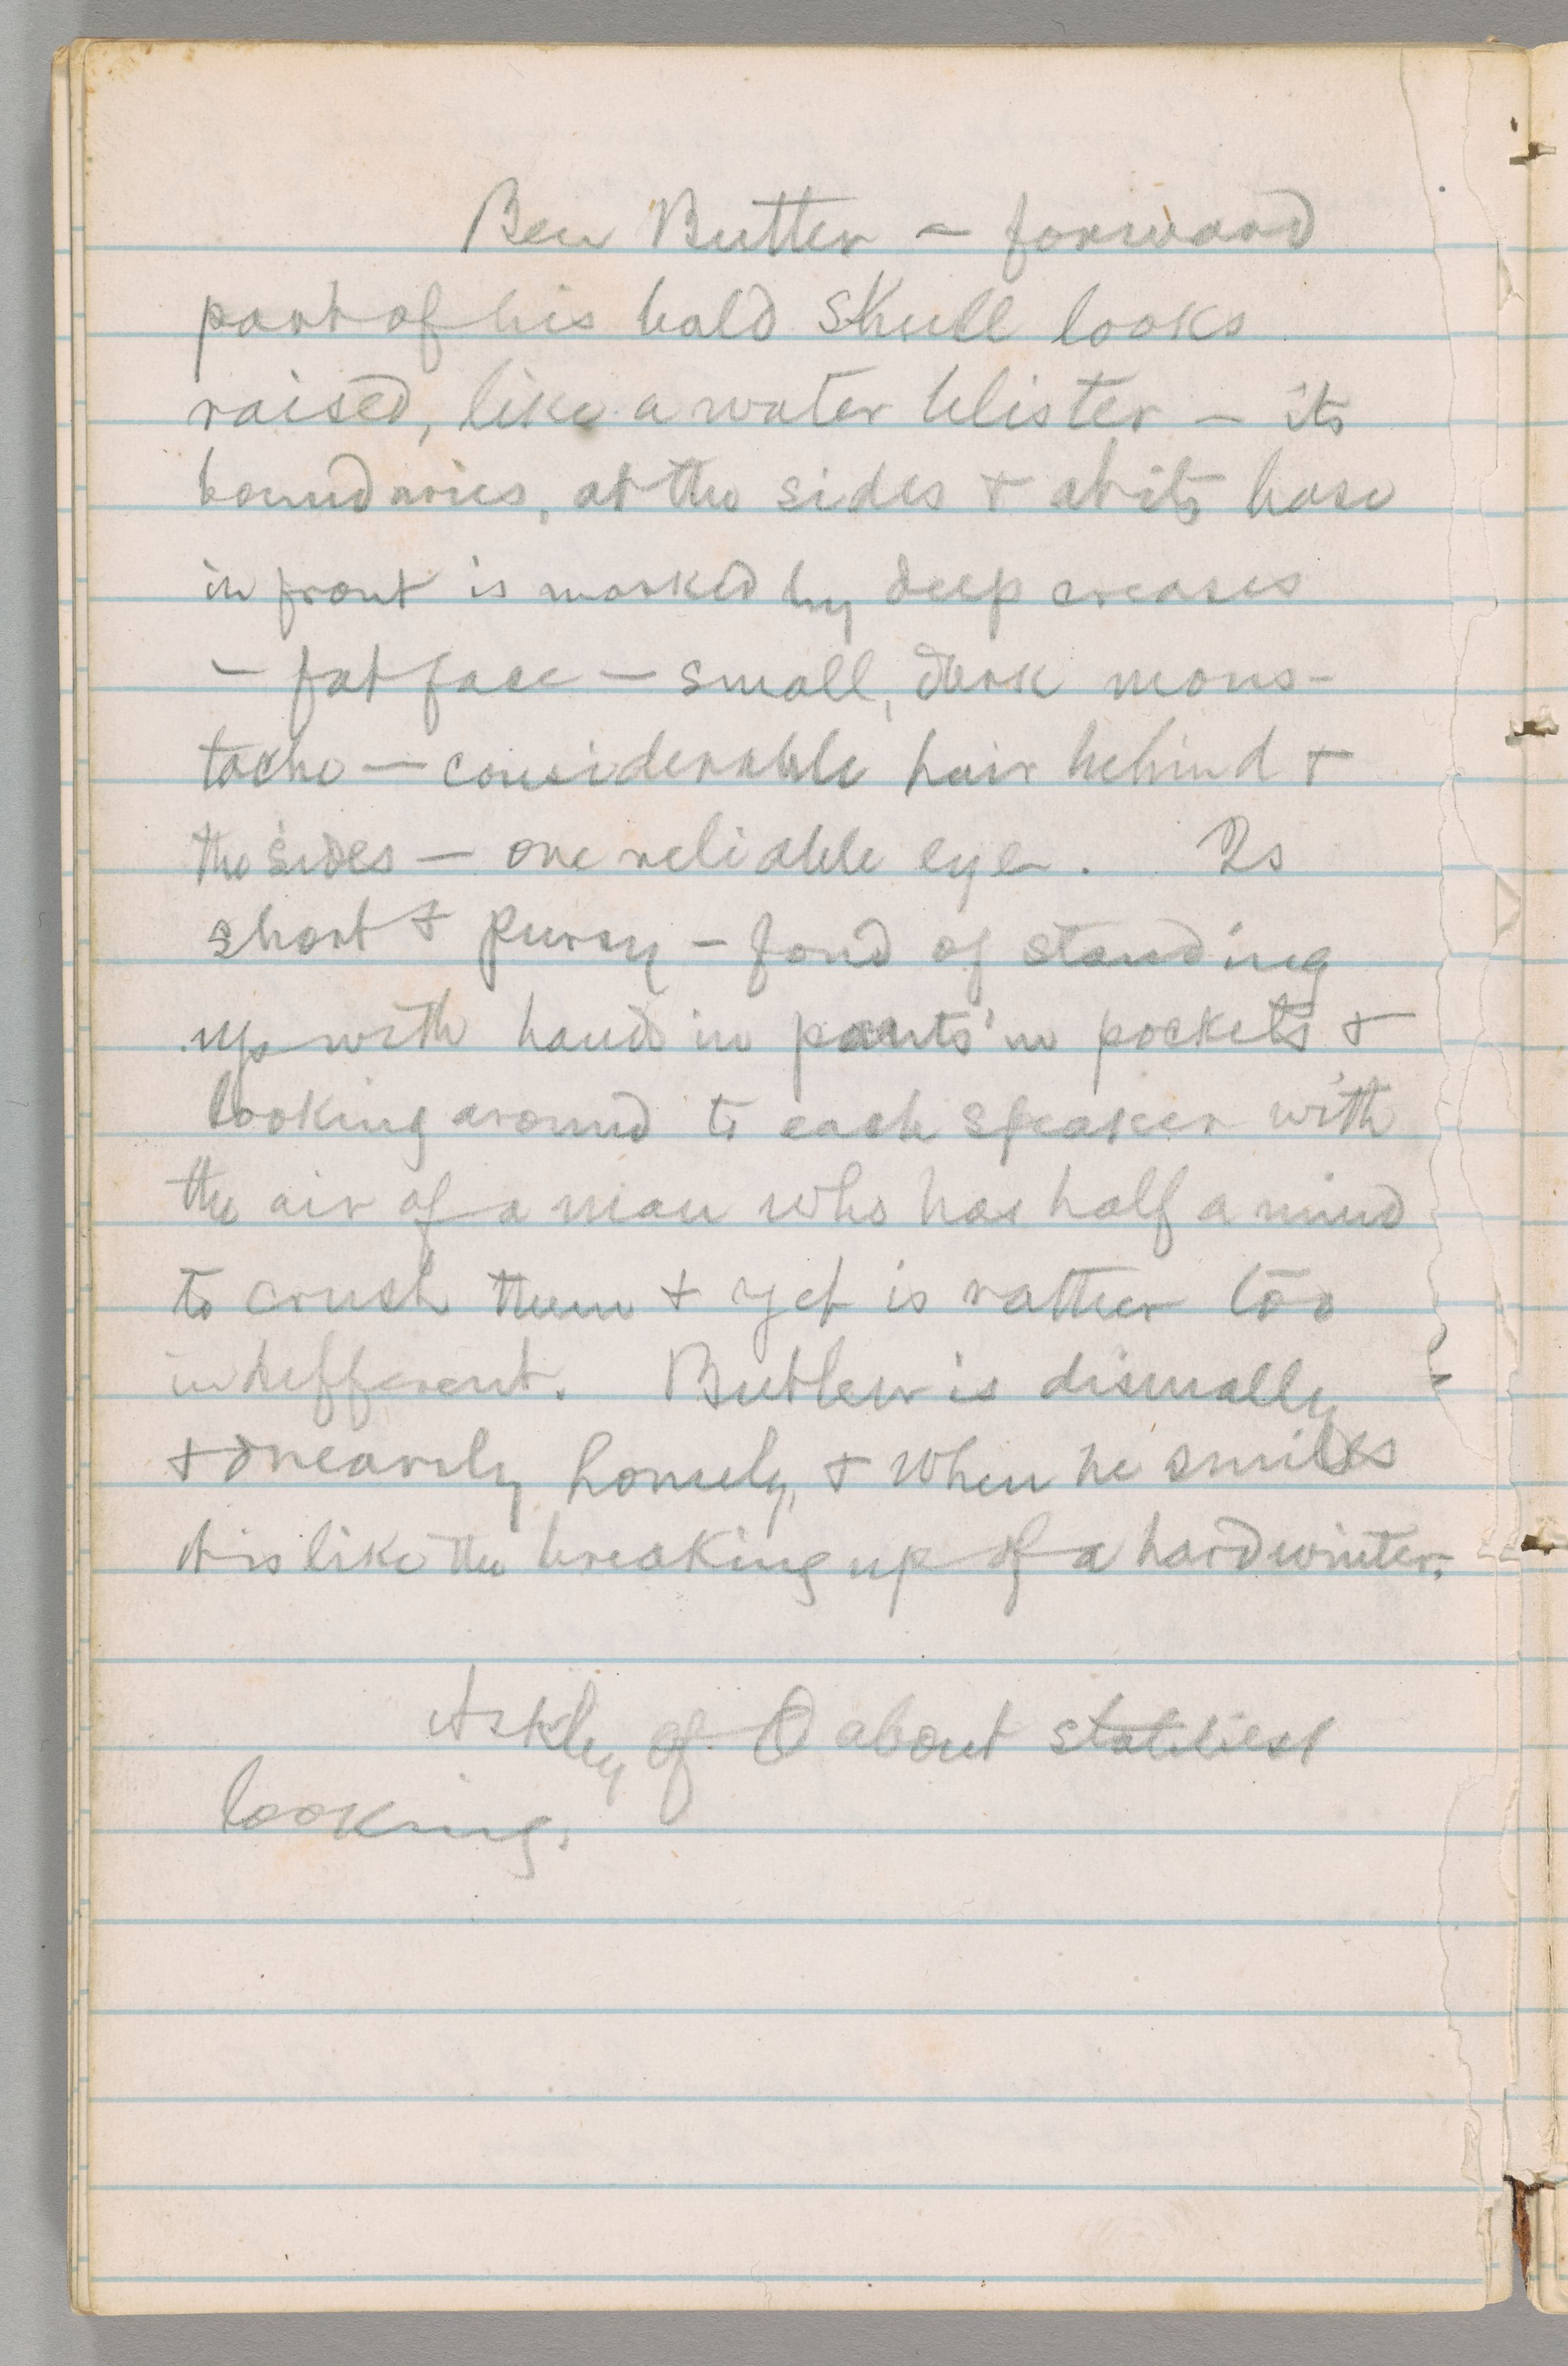 Ben Butler – forward
part of his bald skull looks
raised, like a water blister – its
boundaries, at the sides & at its base
in front is marked by deep creases
– fat face – small, dark mous-
tache — considerable hair behind &
the sides — one reliable eye. Is
short & pursy – fond of standing
up with hands in pants' pockets &
looking around to each speaker with
the air of a man who has half a mind
to crush them & yet is rather too
indifferent. Butler is dismally
& drearily homely, & when he smiles
it is like the breaking up of a hard winter.
Ashley of O about stateliest
looking.